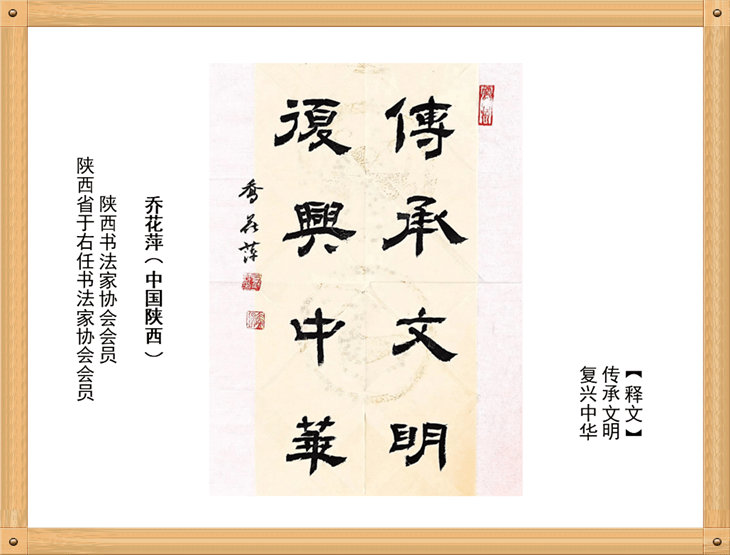 傳承文明
復興中華
乔花萍
【释文】
传承文明
复兴中华
乔花萍（中国陕西）
陕西书法家协会会员
陕西省于右任书法家协会会员